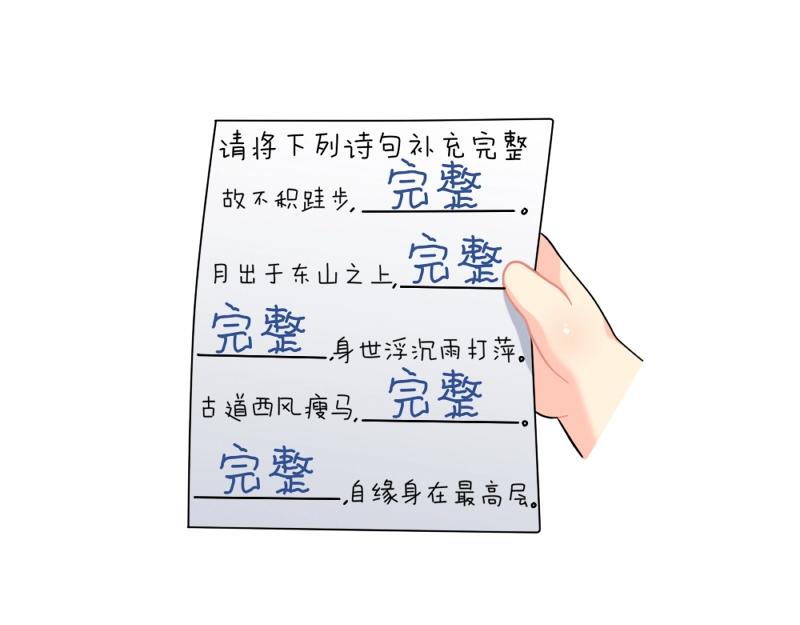 请将下列诗句补充完整
故不积跬步,完整。
月出于东山之上,完整
完整,身世浮沉雨打萍。
古道西风瘦马,完整。
完整,自缘身在最高层。